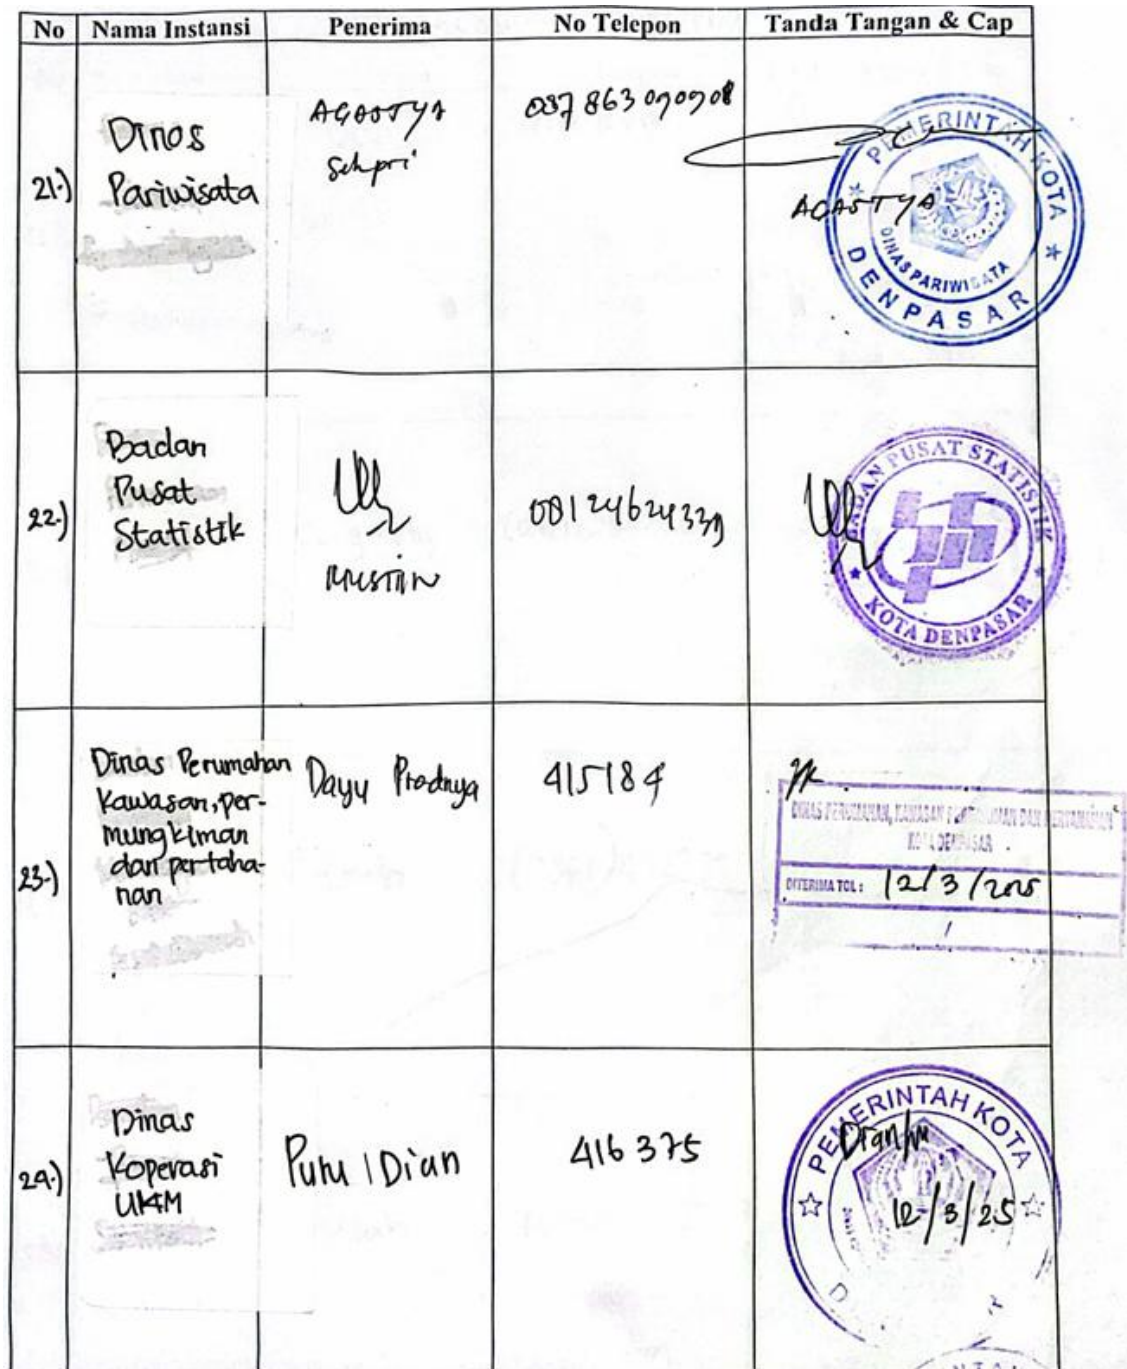 No Nama Instansi Penerima No Telepon Tanda Tangan & Cap
21.) Dinas Pariwisata
AGASTYA
Sekpri
087863090908
AGASTYA
PEMERINTAH KOTA
DINAS PARIWISATA
DENPASAR
22.) Badan
Pusat
Statistik
KRISTIN
081246243
BADAN PUSAT STATISTIK
KOTA DENPASAR
23.) Dinas Perumahan
Kawasan, per-
mungkiman
dan pertaha-
nan
Dayu Pradnya
415184
DINAS PERUMAHAN, KAWASAN PERMUKIMAN DAN PERTANAHAN
KOTA DENPASAR
DITERIMA TGL : 12/3/2025
24.) Dinas
Koperasi
UKM
Putu / Dian
416375
PEMERINTAH KOTA
Dian
12/3/25